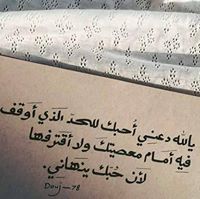 يالله دعني أحبك للحد الذي أوقف
فيه أمام معصيتك ولا أقترفها
لأن حُبك ينهاني.
Douj-78